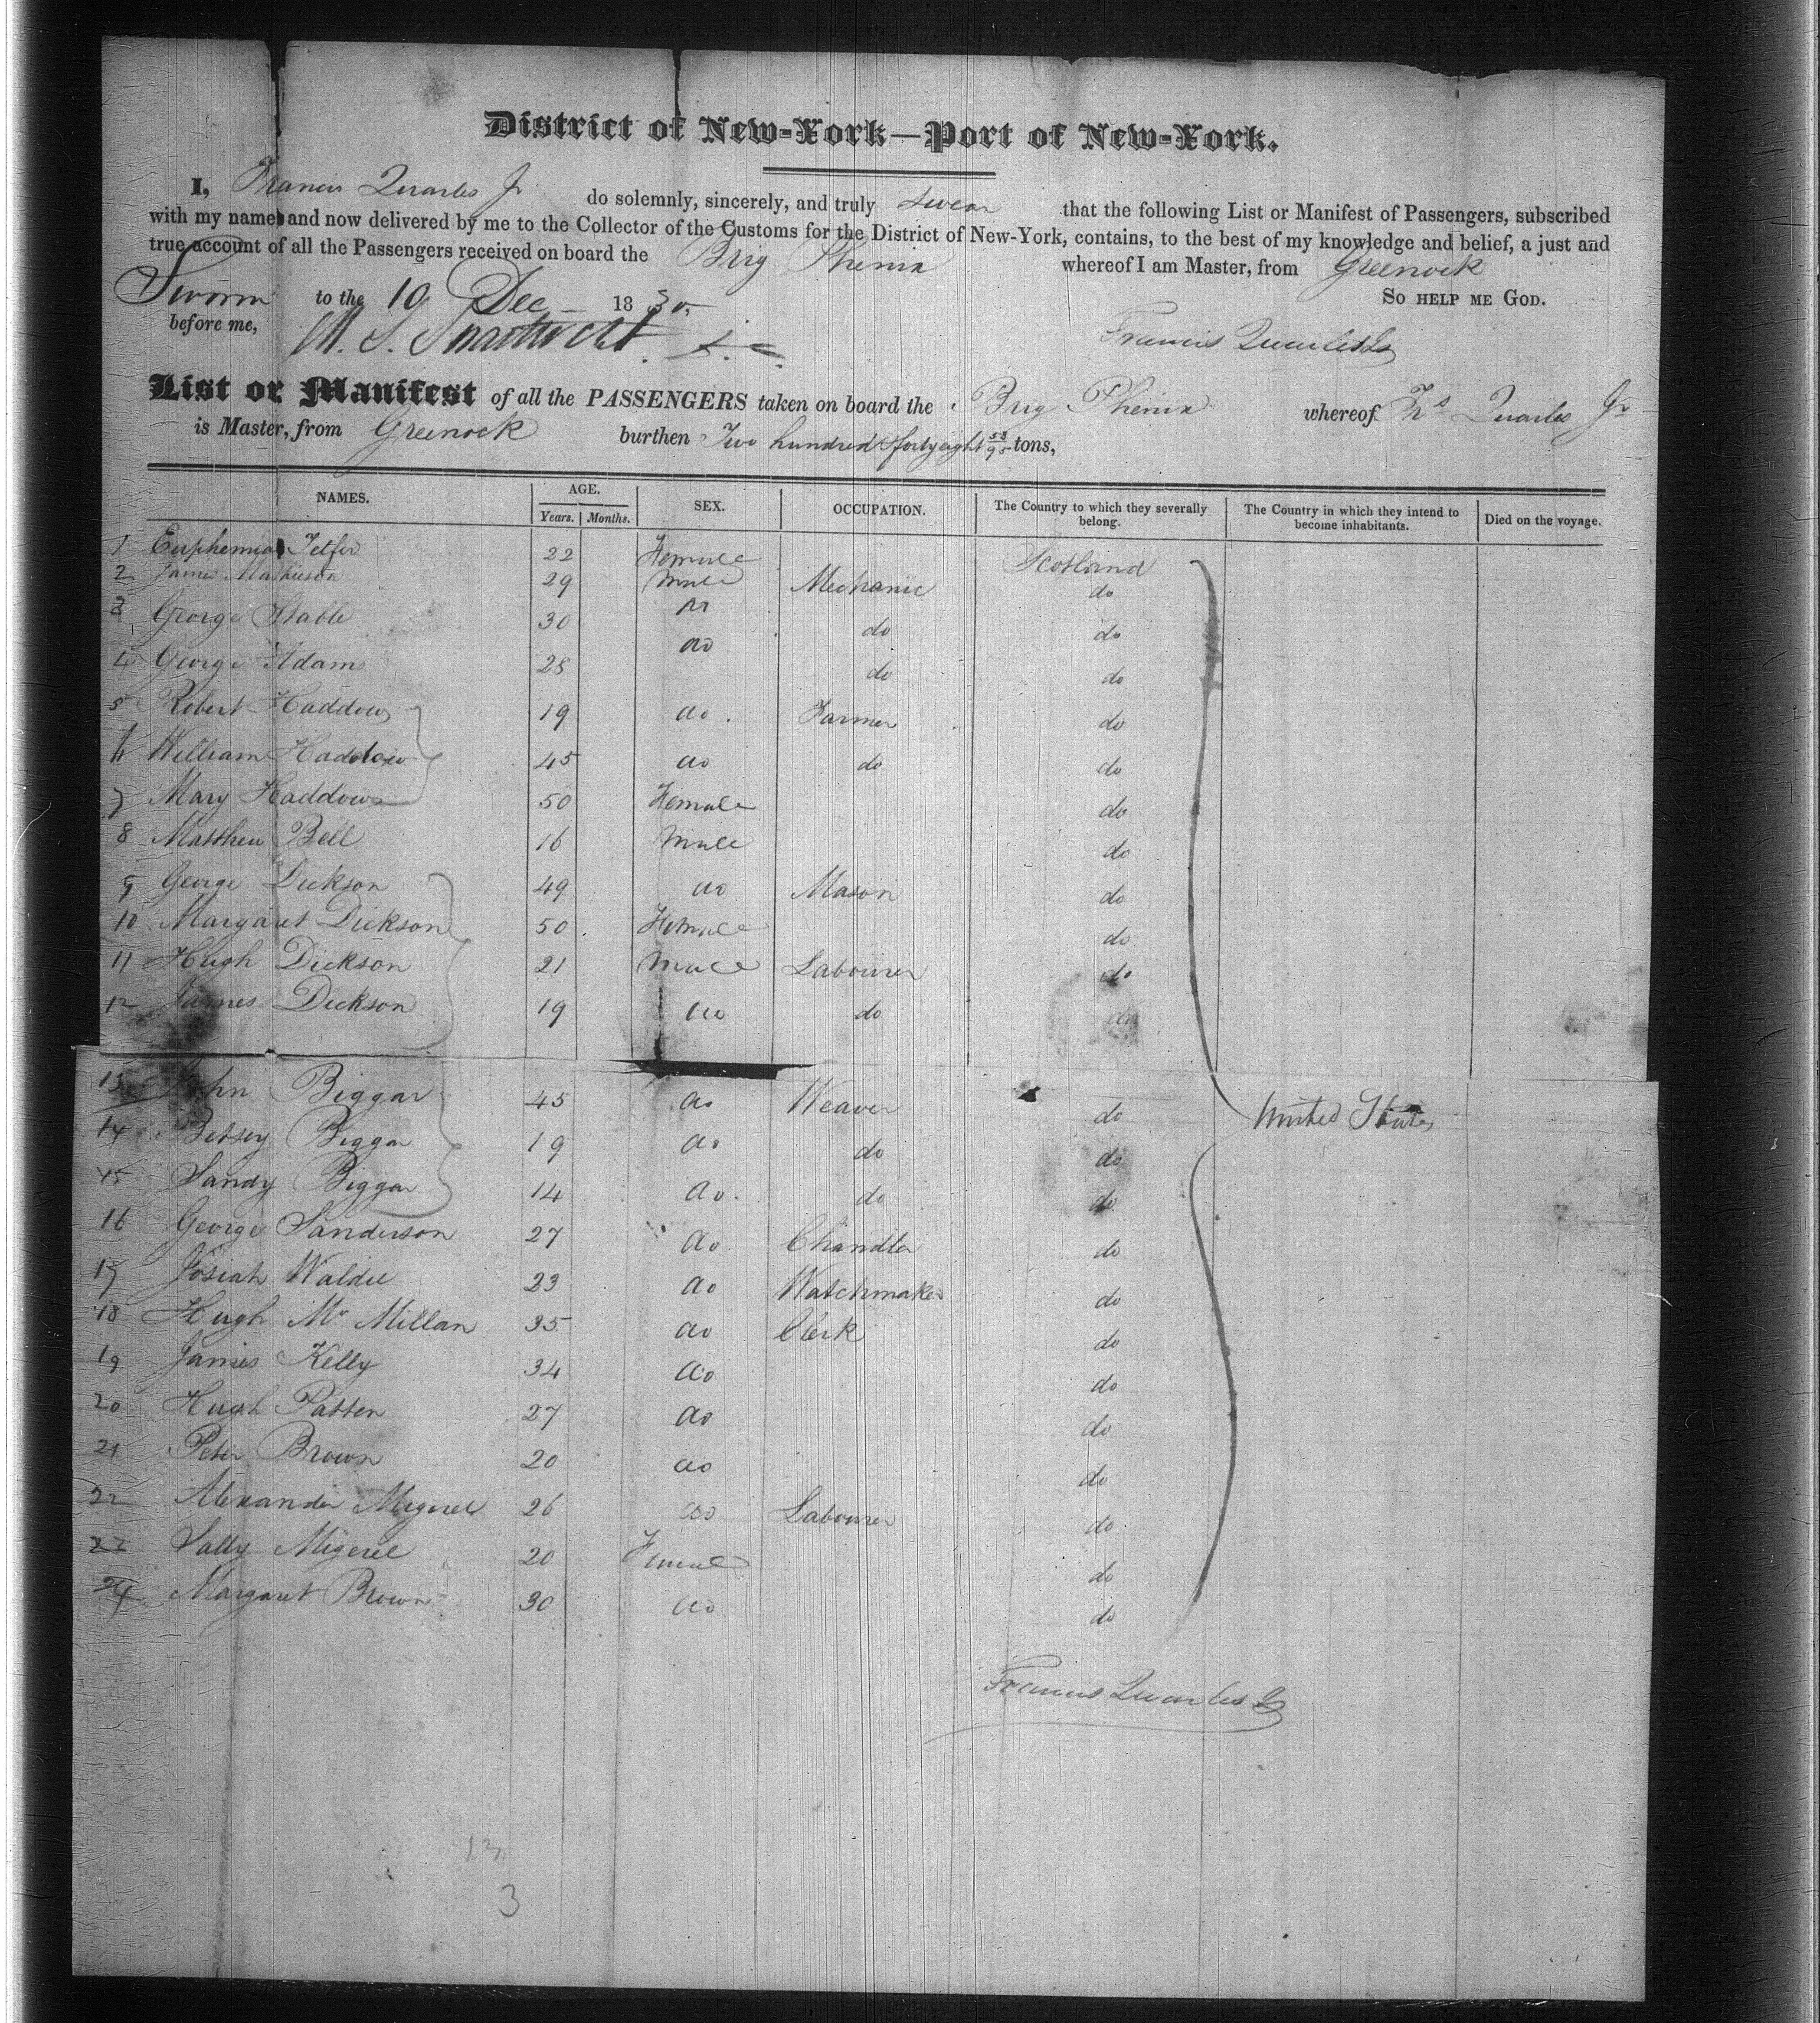 District of New-York—Port of New-York.
I, Francis Quarles Jr do solemnly, sincerely, and truly swear that the following List or Manifest of Passengers, subscribed
with my name and now delivered by me to the Collector of the Customs for the District of New-York, contains, to the best of my knowledge and belief, a just and
true account of all the Passengers received on board the Brig Phenix whereof I am Master, from Greenock
Sworn to the 10 Dec 1830. SO HELP ME GOD.
before me,
M. S. Swartwout Francis Quarles Jr
List or Manifest of all the PASSENGERS taken on board the Brig Phenix whereof Frs Quarles Jr
is Master, from Greenock burthen Two hundred & forty eight 53/95 tons,
NAMES. AGE. SEX. OCCUPATION. The Country to which they severally belong. The Country in which they intend to become inhabitants. Died on the voyage.
Years. Months.
1 Euphemia Telfer 22 Female Scotland
2 James Mathieson 29 Male Mechanic do
3 George Stable 30 do do do
4 George Adam 28 do do do
5 Robert Haddow 19 do. Farmer do
6 William Haddow 45 do do do
7 Mary Haddow 50 Female do
8 Matthew Bell 16 Male do
9 George Dickson 49 do Mason do
10 Margaret Dickson 50. Female do
11 Hugh Dickson 21 Male Labourer do
12 James Dickson 19 do do do
13 John Biggar 45 do Weaver do United States
14 Betsey Biggar 19 do do do
15 Sandy Biggar 14 do. do do
16 George Sanderson 27 do Chandler do
17 Josiah Waldie 23 do Watchmaker do
18 Hugh Mc Millan 35 do Clerk do
19 James Kelly 34 do do
20 Hugh Patten 27 do do
21 Peter Brown 20 do do
22 Alexander Migerel 26 do Labourer do
23 Sally Migerel 20 Female do
24 Margaret Brown 30 do do
Francis Quarles Jr
13
3